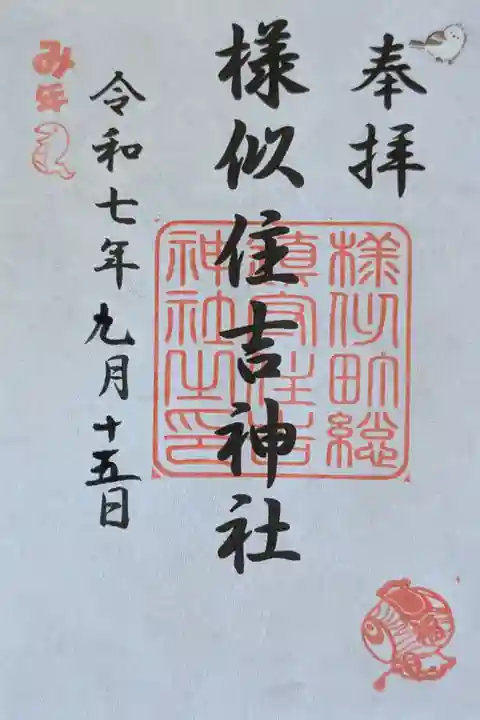 奉拝
様似住吉神社
様似町総
鎮守住吉
神社之印
令和七年九月十五日